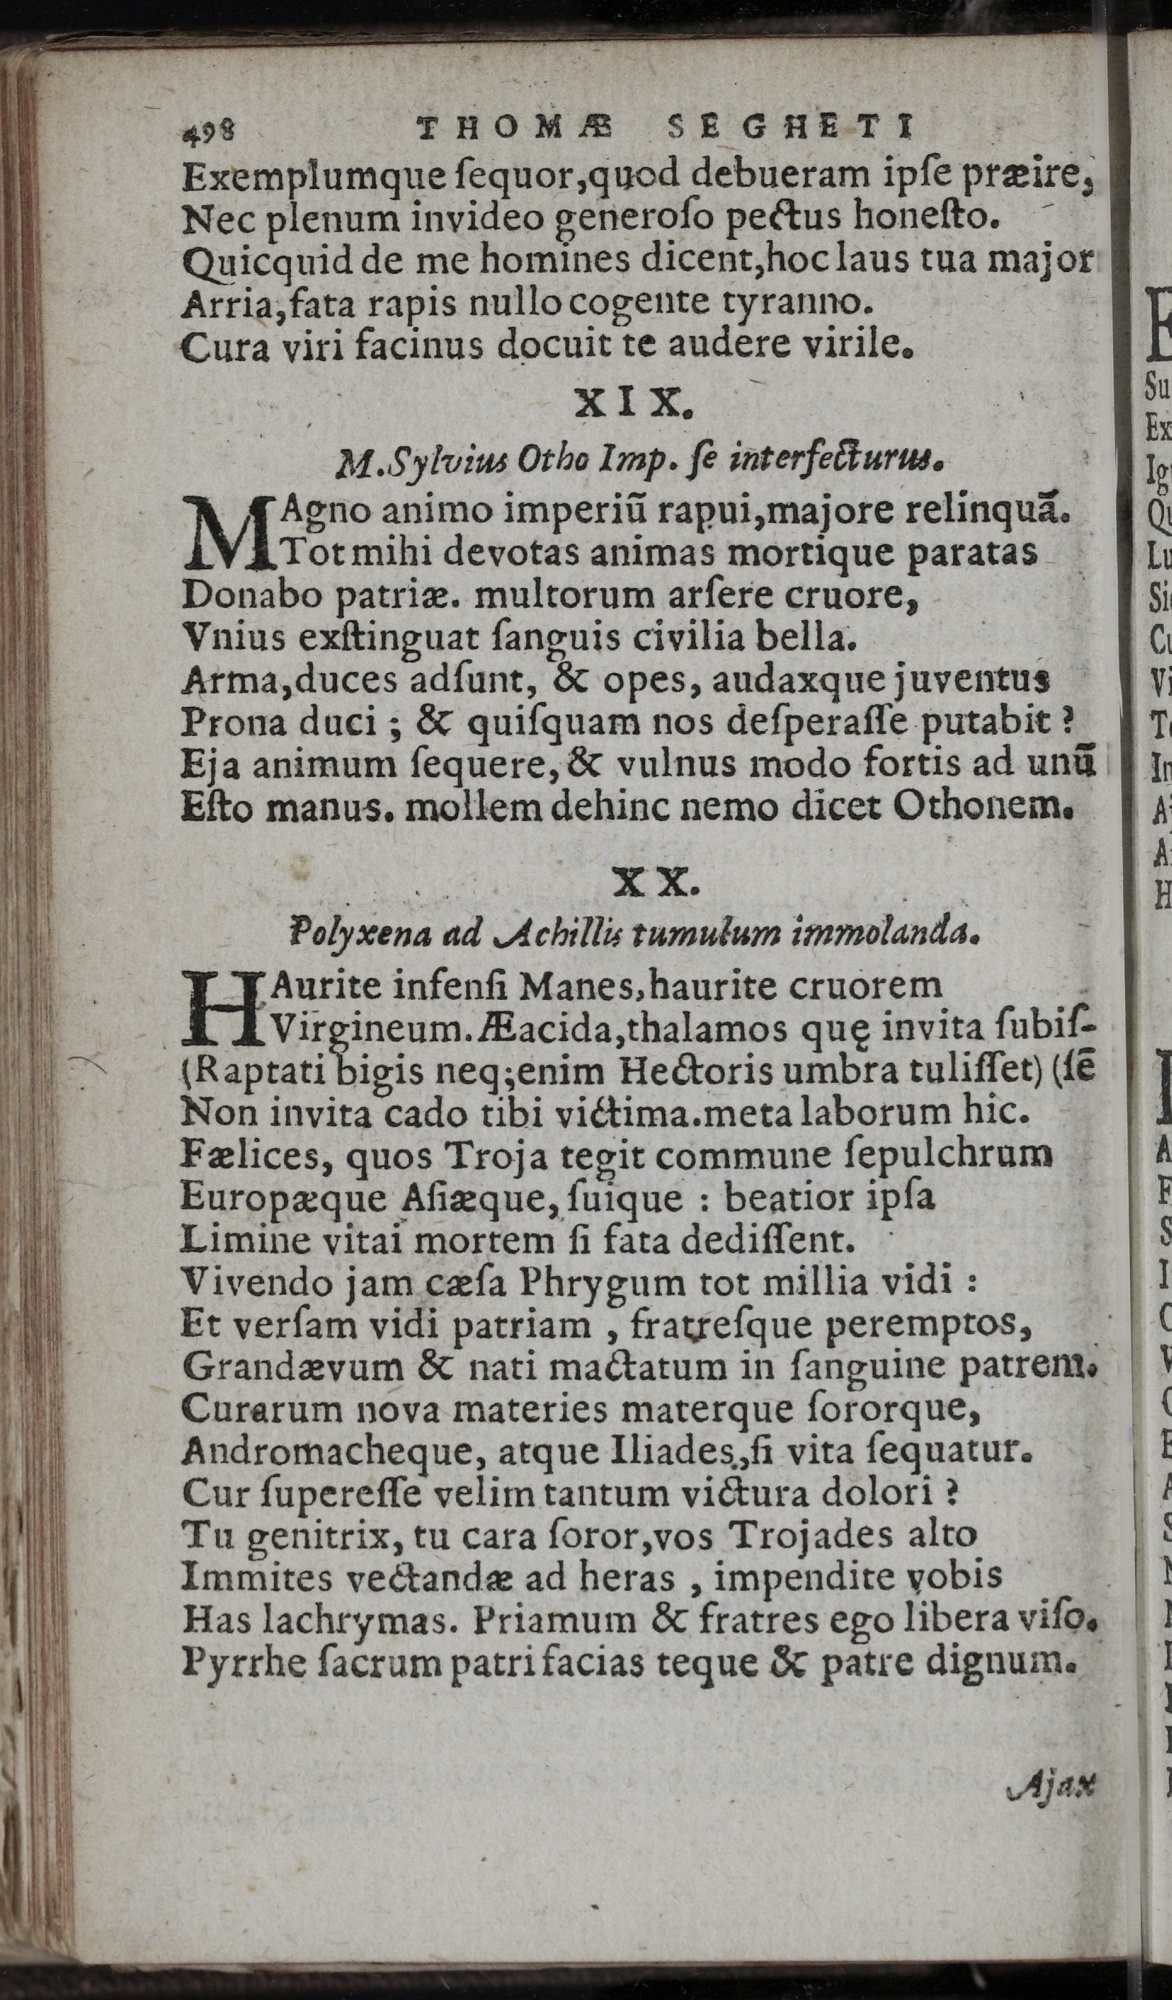 498 THOMÆ SEGHETI
Exemplumque ſequor,quod debueram ipſe præire,
Nec plenum invideo generoſo pectus honeſto.
Quicquid de me homines dicent,hoc laus tua major
Arria,fata rapis nullo cogente tyranno.
Cura viri facinus docuit te audere virile.
XIX.
M.Sylvius Otho Imp. ſe interfecturus.
MAgno animo imperiũ rapui,majore relinquã.
Tot mihi devotas animas mortique paratas
Donabo patriæ. multorum arſere cruore,
Vnius exſtinguat ſanguis civilia bella.
Arma,duces adſunt, & opes, audaxque juventus
Prona duci ; & quiſquam nos deſperaſſe putabit ?
Eja animum ſequere,& vulnus modo fortis ad unũ
Eſto manus. mollem dehinc nemo dicet Othonem.
XX.
Polyxena ad Achillis tumulum immolanda.
HAurite infenſi Manes,haurite cruorem
Virgineum.Æacida,thalamos quę invita ſubiſ-
(Raptati bigis neq;enim Hectoris umbra tuliſſet) (ſẽ
Non invita cado tibi victima.meta laborum hic.
Fælices, quos Troja tegit commune ſepulchrum
Europæque Aſiæque, ſuique : beatior ipſa
Limine vitai mortem ſi fata dediſſent.
Vivendo jam cæſa Phrygum tot millia vidi :
Et verſam vidi patriam , fratreſque peremptos,
Grandævum & nati mactatum in ſanguine patrem.
Curarum nova materies materque ſororque,
Andromacheque, atque Iliades,ſi vita ſequatur.
Cur ſupereſſe velim tantum victura dolori ?
Tu genitrix, tu cara ſoror,vos Trojades alto
Immites vectandæ ad heras , impendite vobis
Has lachrymas. Priamum & fratres ego libera viſo.
Pyrrhe ſacrum patri facias teque & patre dignum.
Ajax